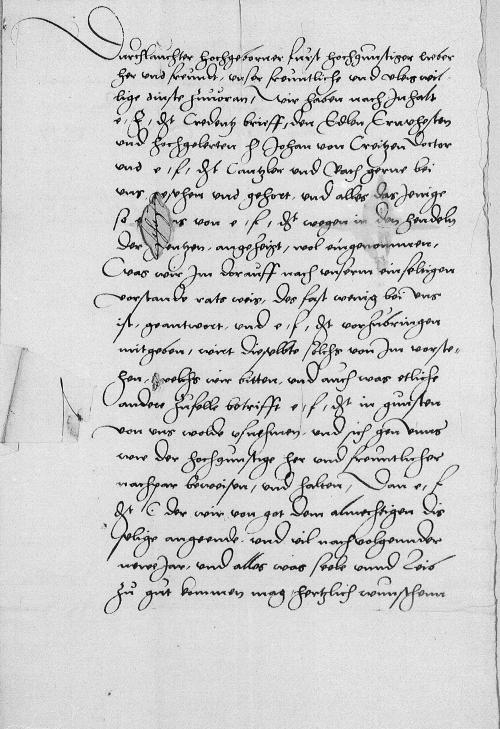 Durchlauchter hochgeborner furst hochgunstiger lieber
her und freundt, unser freuntliche und vleis wil-
lige dinste zuuoran, Wir haben nach Inhalt
e, f, dt Credentz brieff, den Edlen Ernvhesten
und hochgelerten h Johan von Creitzen doctor
und e, f, dt Cantzler und Rath gerne bei
uns gesehen und gehort, und alles das Jenige
so er uns von e, f, dt wegen in den hendeln
der angeheigt, wol eingenommen,
Was wir Im dorauff nach unserm einfeltigen
vorstande rats weis, des fast wenig bei uns
ist, geantwort, und e, f, dt vorzubringen
mitgeben, wirt dieselbte solchs von Im vorste-
hen, welchs wir bitten, und auch was etliche
andere zufelle betrifft e, f, dt in gunsten
von uns wolde ufnehmen, und sich gen uns
wie der hochgunstige her und freuntlicher
nachpar beweisen, und halten, Dan e, f
dt der wir von got dem almechtigen dis
selige angeende, und vil nachvolgennder
newe Jar, und alles was seele unnd leib
zu gut kommen mag hertzlich wunschenn